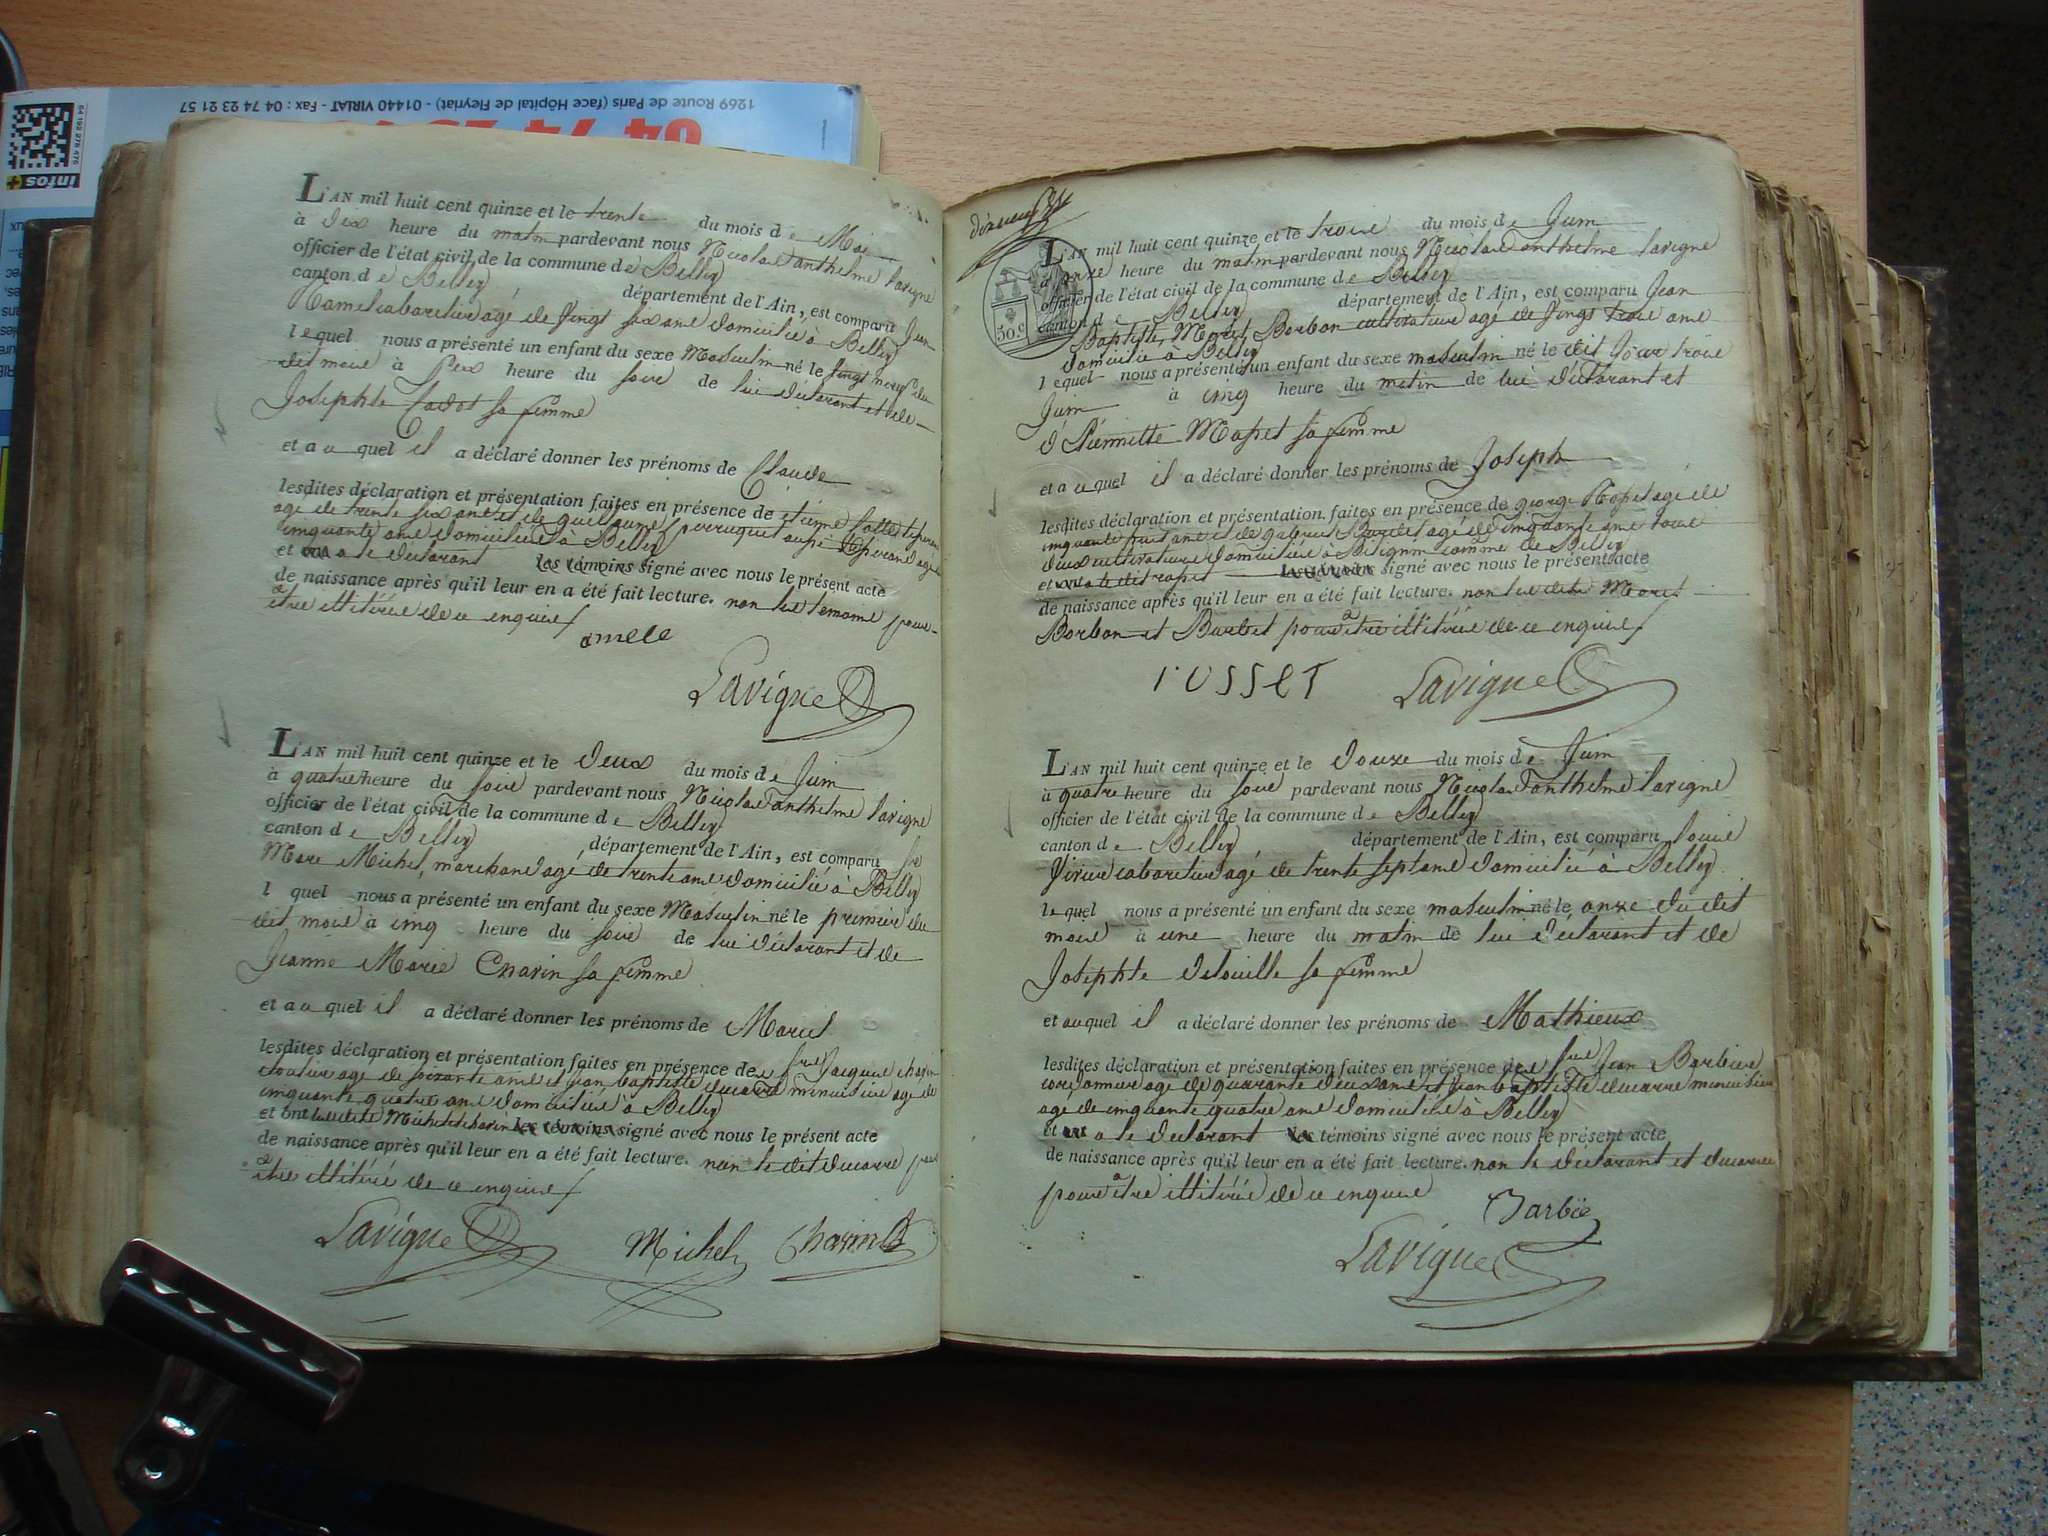 1269 Route de Paris (face Hôpital de Fleyriat) - 01440 VIRIAT - Fax : 04 74 23 21 57
infos+
L'AN mil huit cent quinze et le trente du mois de Mai
à dix heure du matin pardevant nous Nicolas Anthelme Lavigne
officier de l'état civil de la commune de Belley
canton de Belley département de l'Ain, est comparu Jean
cabaretier agé de vingt six ans domicilié à Belley
lequel nous a présenté un enfant du sexe Masculin né le vingt neuf du
dit mois à six heure du soir de lui déclarant et de
Josephte Cadot sa femme
et auquel il a déclaré donner les prénoms de Claude
lesdites déclaration et présentation faites en présence de etienne
agé de trente six ans et de guillaume perruquet aussi agé de
cinquante ans domiciliés à Belley
et a le declarant les témoins signé avec nous le présent acte
de naissance après qu'il leur en a été fait lecture. non les temoins pour
être illitérés de ce enquis
amele
Lavigne
L'AN mil huit cent quinze et le deux du mois de Juin
à quatre heure du soir pardevant nous Nicolas Anthelme Lavigne
officier de l'état civil de la commune de Belley
canton de Belley département de l'Ain, est comparu sr
Marc Michel, marchand agé de trente ans domicilié à Belley
l quel nous a présenté un enfant du sexe Masculin né le premier du
dit mois à cinq heure du soir de lui déclarant et de
Jeanne Marie Charin sa femme
et auquel il a déclaré donner les prénoms de Marcel
lesdites déclaration et présentation faites en présence de srs Jacques charin
agé de soixante ans et Jean baptiste ducarre menuisier agé de
cinquante quatre ans domiciliés à Belley
et ont lesdits Michel et charin les témoins signé avec nous le présent acte
de naissance après qu'il leur en a été fait lecture. non le dit ducarre pour
être illitéré de ce enquis
Lavigne Michel Charin
dixneuf
50 c
L'AN mil huit cent quinze et le trois du mois de Juin
à onze heure du matin pardevant nous Nicolas Anthelme Lavigne
officier de l'état civil de la commune de Belley
canton de Belley département de l'Ain, est comparu Jean
Baptiste Moret Borbon cultivateur agé de vingt trois ans
domicilié à Belley
lequel nous a présenté un enfant du sexe masculin né le dit jour trois
Juin à cinq heure du matin de lui déclarant et
d Pierrette sa femme
et auquel il a déclaré donner les prénoms de Joseph
lesdites déclaration et présentation faites en présence de george agé de
cinquante huit ans et de Barbet agé de cinquante ans tous
deux cultivateurs domiciliés à comme de Belley
et a le dit signé avec nous le présent acte
de naissance après qu'il leur en a été fait lecture. non les dits Moret
Borbon et Barbet pour être illitérés de ce enquis
rosset Lavigne
L'AN mil huit cent quinze et le douze du mois de Juin
à quatre heure du soir pardevant nous Nicolas Anthelme Lavigne
officier de l'état civil de la commune de Belley
canton de Belley département de l'Ain, est comparu Louis
cabaretier agé de trente sept ans domicilié à Belley
lequel nous a présenté un enfant du sexe masculin né le onze du dit
mois à une heure du matin de lui déclarant et de
Josephte sa femme
et auquel il a déclaré donner les prénoms de Mathieux
lesdites déclaration et présentation faites en présence des srs Jean Barbier
cordonnier agé de quarante deux ans et Jean baptiste ducarre menuisier
agé de cinquante quatre ans domiciliés à Belley
et a le declarant les témoins signé avec nous le présent acte
de naissance après qu'il leur en a été fait lecture. non le declarant et ducarre
pour être illitérés de ce enquis
Barbie
Lavigne